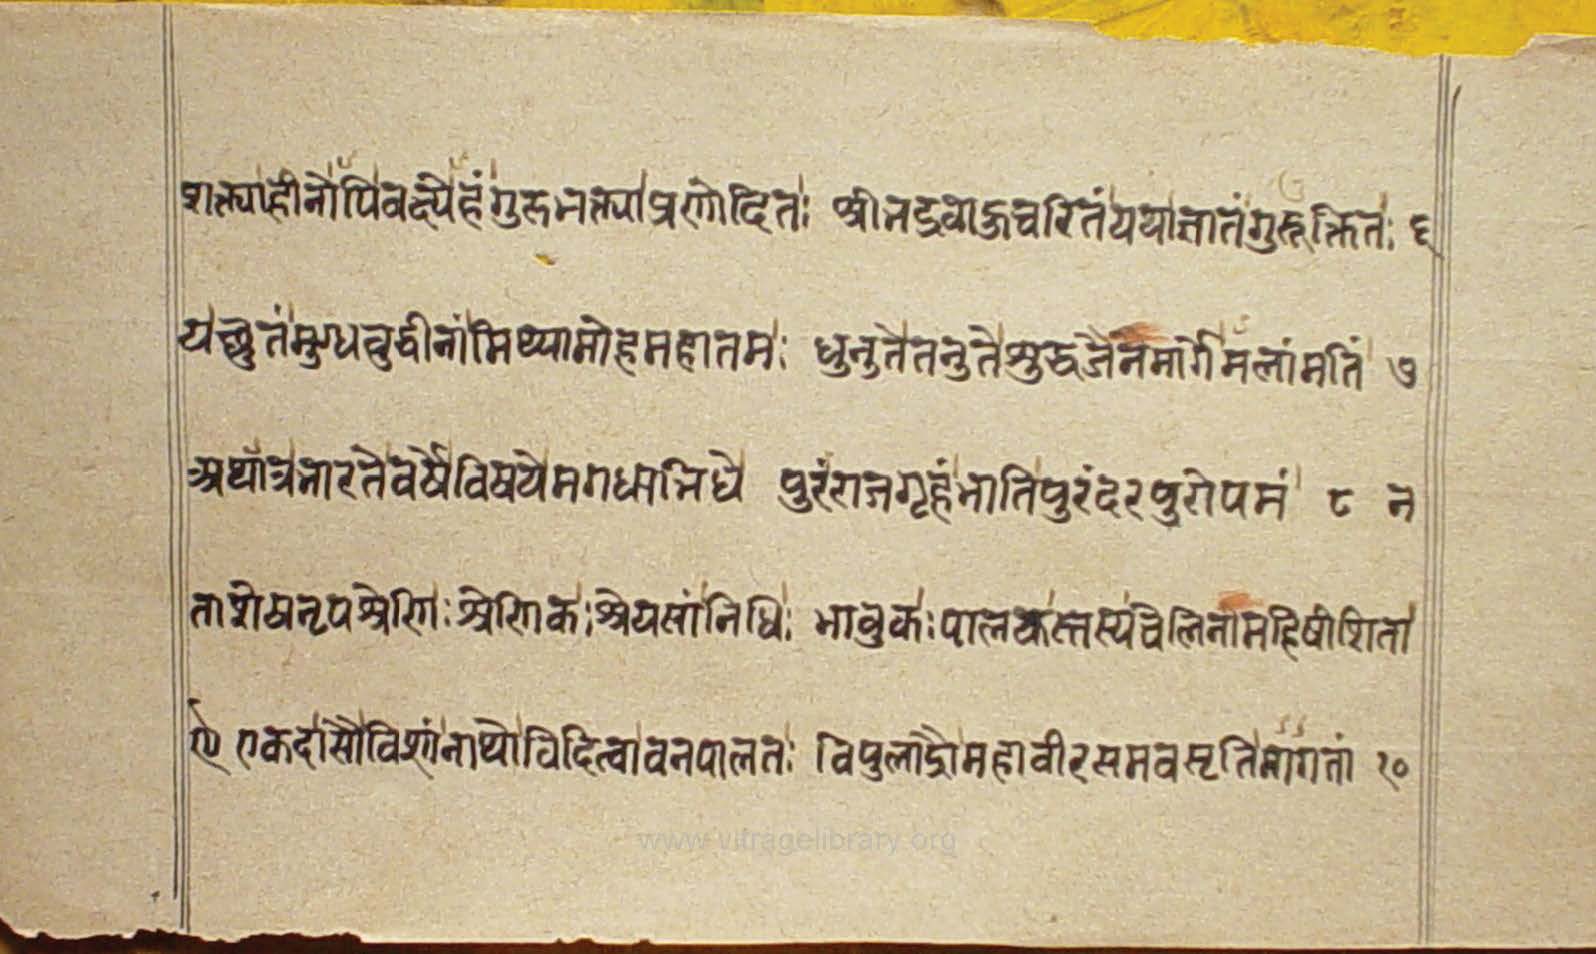 शक्त्याहीनोपिवक्ष्येहंगुरुभक्त्याप्रणोदितः श्रीभद्रबाहुचरितंयथाज्ञातंगुरूक्तितः ६
यच्छ्रुतंमुग्धबुद्धीनांमिथ्यामोहमहातमः धुनुतेतनुतेशुद्धजैनमार्गेमलांमतिं ७
अथात्रभारतेवर्षेविषयेमगधाभिधे पुरंराजगृहंभातिपुरंदरपुरोपमं ८ न
ताशेषनृपश्रेणिःश्रेणिकःश्रेयसांनिधिः भावुकःपालकस्तस्यचेलिनीमहिषीशिता
९ एकदासौविशांनाथोविदित्वावनपालतः विपुलाद्रौमहावीरसमवसृतिमागतां १०
www.vitragelibrary.org